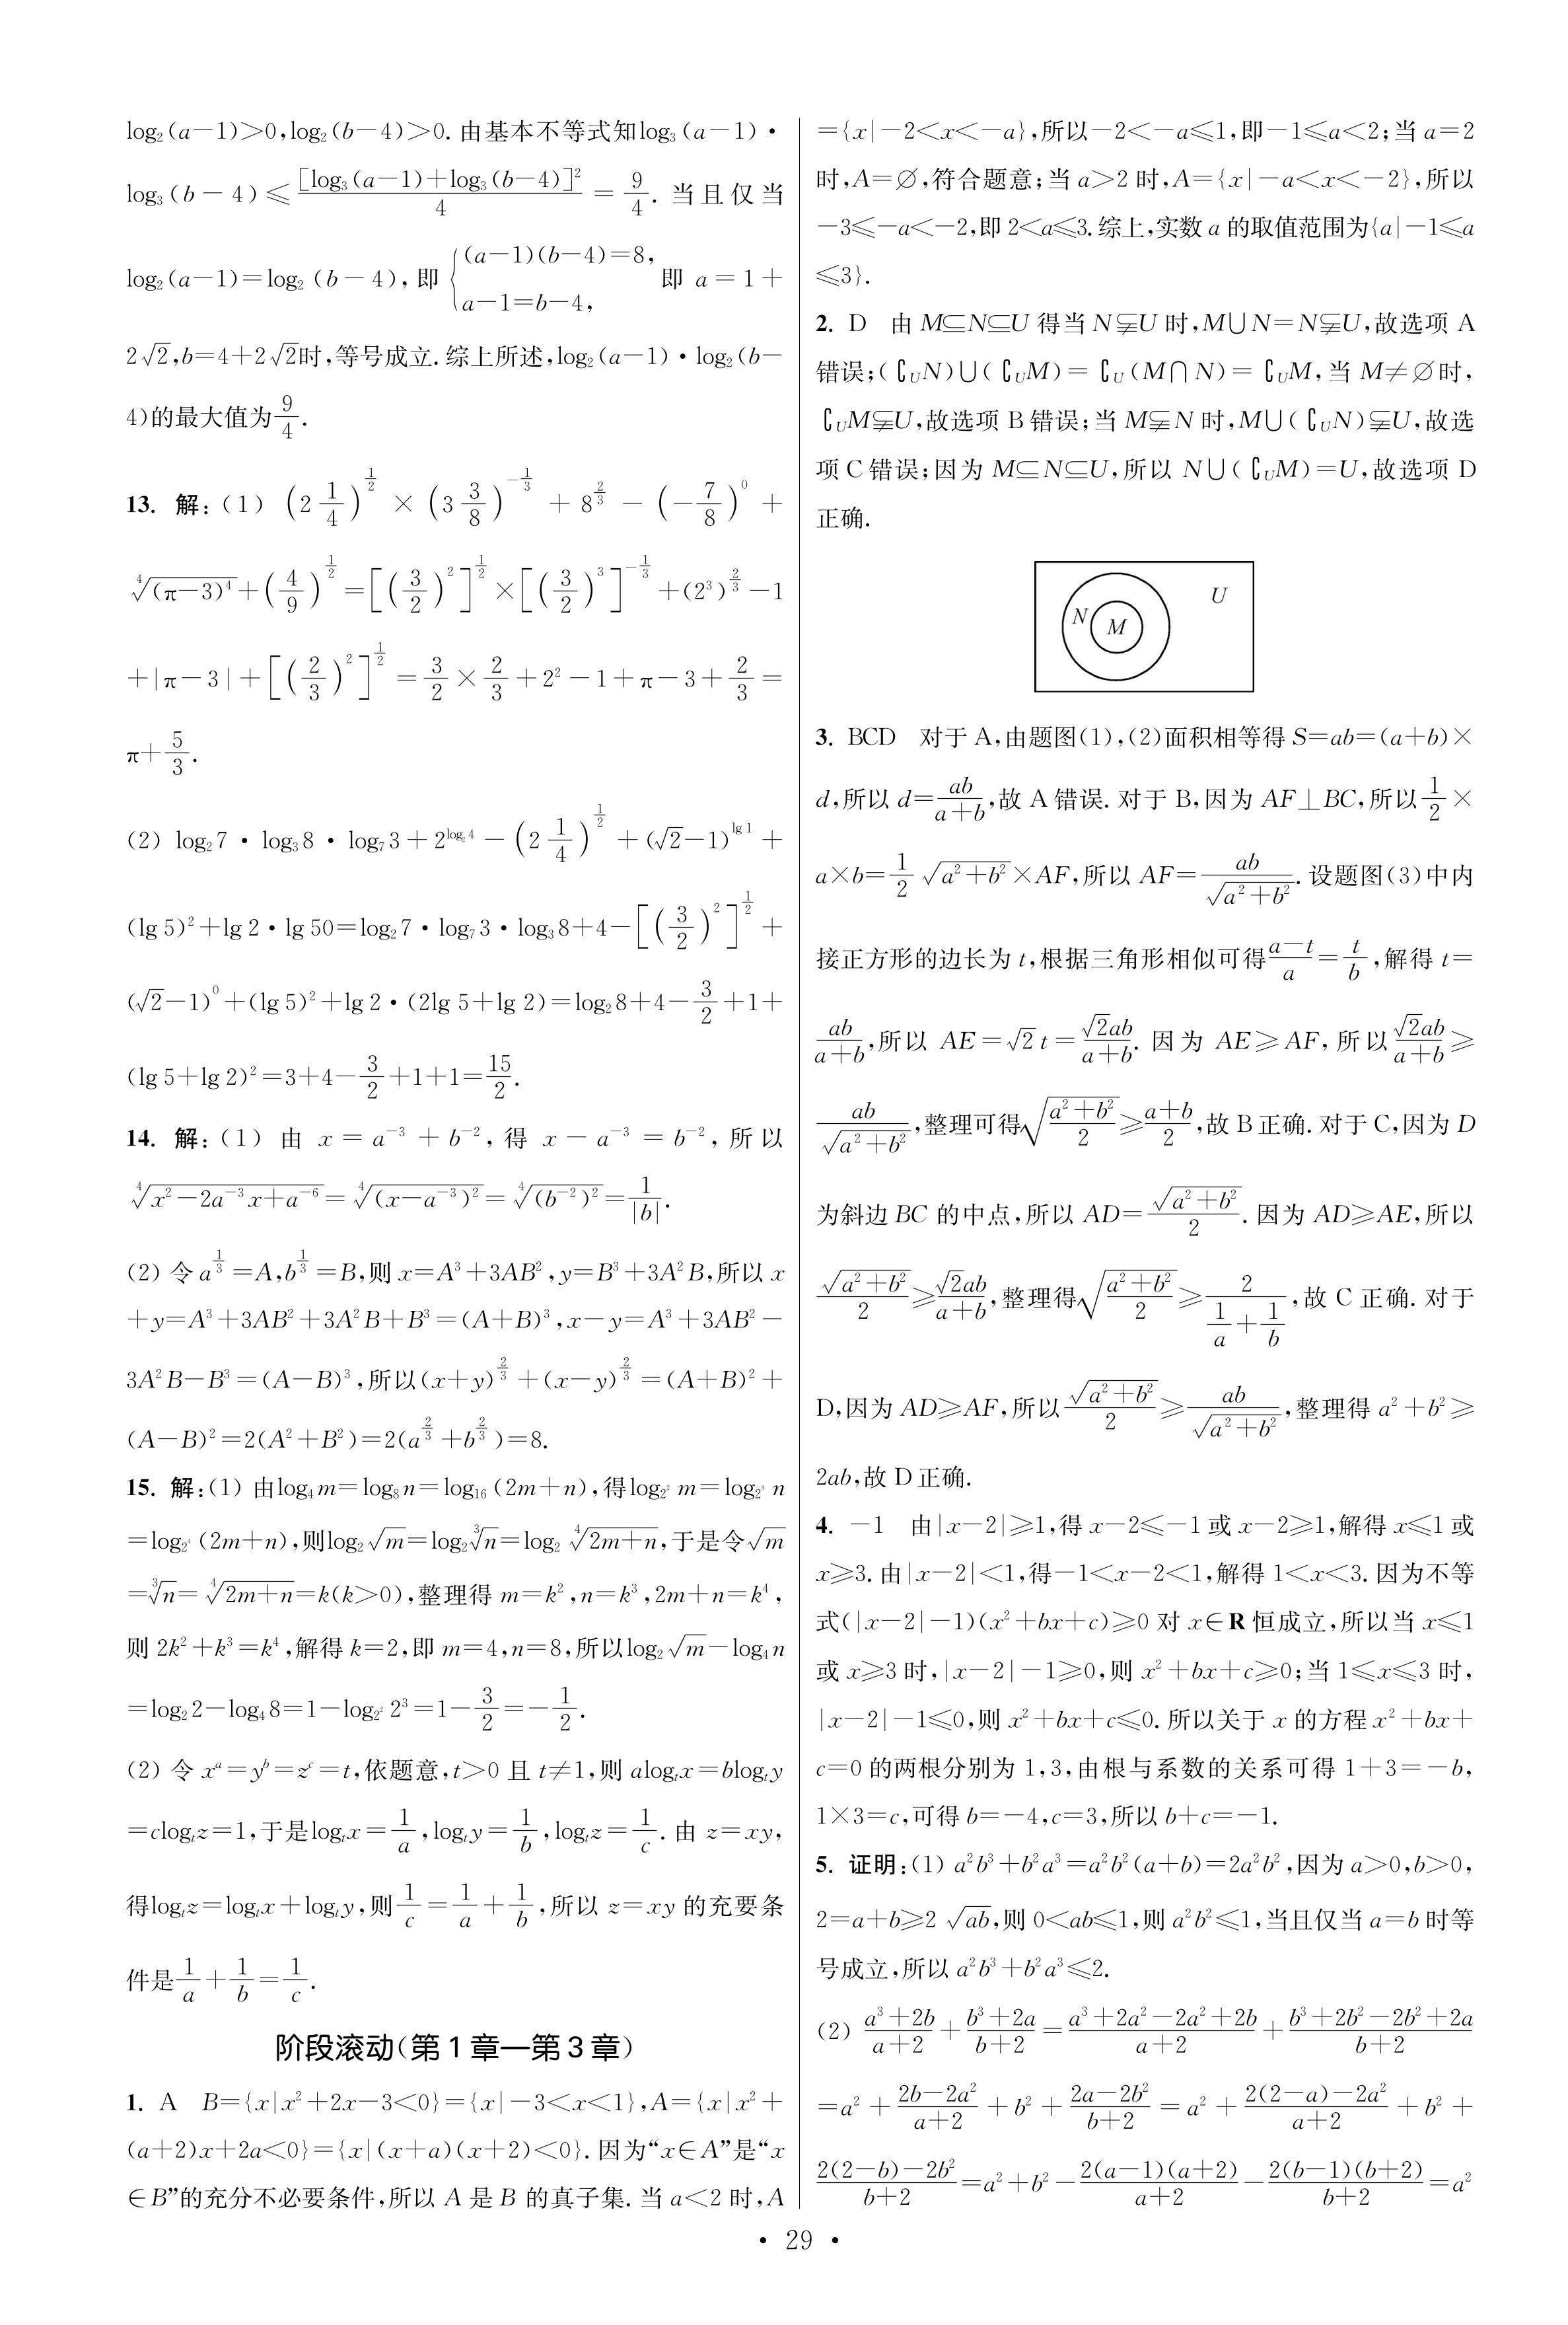 log₂(a−1)>0,log₂(b−4)>0. 由基本不等式知log₃(a−1)·
log₃(b−4)≤[log₃(a−1)+log₃(b−4)]²/4=9/4. 当且仅当
log₂(a−1)=log₂(b−4), 即{(a−1)(b−4)=8, a−1=b−4, 即 a=1+
2√2,b=4+2√2时,等号成立. 综上所述,log₂(a−1)·log₂(b−
4)的最大值为9/4.
13. 解:(1) (2 1/4)^(1/2)×(3 3/8)^(−1/3)+8^(2/3)−(−7/8)⁰+
∜((π−3)⁴)+(4/9)^(1/2)=[(3/2)²]^(1/2)×[(3/2)³]^(−1/3)+(2³)^(2/3)−1
+|π−3|+[(2/3)²]^(1/2)=3/2×2/3+2²−1+π−3+2/3=
π+5/3.
(2) log₂7·log₃8·log₇3+2^(log₂4)−(2 1/4)^(1/2)+(√2−1)^(lg 1)+
(lg 5)²+lg 2·lg 50=log₂7·log₇3·log₃8+4−[(3/2)²]^(1/2)+
(√2−1)⁰+(lg 5)²+lg 2·(2lg 5+lg 2)=log₂8+4−3/2+1+
(lg 5+lg 2)²=3+4−3/2+1+1=15/2.
14. 解:(1) 由 x=a⁻³+b⁻², 得 x−a⁻³=b⁻², 所以
∜(x²−2a⁻³x+a⁻⁶)=∜((x−a⁻³)²)=∜((b⁻²)²)=1/|b|.
(2) 令 a^(1/3)=A,b^(1/3)=B,则 x=A³+3AB²,y=B³+3A²B,所以 x
+y=A³+3AB²+3A²B+B³=(A+B)³,x−y=A³+3AB²−
3A²B−B³=(A−B)³,所以(x+y)^(2/3)+(x−y)^(2/3)=(A+B)²+
(A−B)²=2(A²+B²)=2(a^(2/3)+b^(2/3))=8.
15. 解:(1) 由log₄m=log₈n=log₁₆(2m+n),得log_(2²) m=log_(2³) n
=log_(2⁴)(2m+n),则log₂√m=log₂∛n=log₂∜(2m+n),于是令√m
=∛n=∜(2m+n)=k(k>0),整理得 m=k²,n=k³,2m+n=k⁴,
则 2k²+k³=k⁴,解得 k=2,即 m=4,n=8,所以log₂√m−log₄n
=log₂2−log₄8=1−log_(2²) 2³=1−3/2=−1/2.
(2) 令 xᵃ=yᵇ=zᶜ=t,依题意,t>0 且 t≠1,则 alogₜx=blogₜy
=clogₜz=1,于是logₜx=1/a,logₜy=1/b,logₜz=1/c. 由 z=xy,
得logₜz=logₜx+logₜy,则1/c=1/a+1/b,所以 z=xy 的充要条
件是1/a+1/b=1/c.
阶段滚动(第1章—第3章)
1. A B={x|x²+2x−3<0}={x|−3<x<1},A={x|x²+
(a+2)x+2a<0}={x|(x+a)(x+2)<0}. 因为“x∈A”是“x
∈B”的充分不必要条件,所以 A 是 B 的真子集. 当 a<2 时,A
={x|−2<x<−a},所以−2<−a≤1,即−1≤a<2;当 a=2
时,A=∅,符合题意;当 a>2 时,A={x|−a<x<−2},所以
−3≤−a<−2,即 2<a≤3. 综上,实数 a 的取值范围为{a|−1≤a
≤3}.
2. D 由 M⊆N⊆U 得当 N⫋U 时,M∪N=N⫋U,故选项 A
错误;(∁ᵤN)∪(∁ᵤM)=∁ᵤ(M∩N)=∁ᵤM,当 M≠∅时,
∁ᵤM⫋U,故选项 B 错误;当 M⫋N 时,M∪(∁ᵤN)⫋U,故选
项 C 错误;因为 M⊆N⊆U,所以 N∪(∁ᵤM)=U,故选项 D
正确.
U
N M
3. BCD 对于 A,由题图(1),(2)面积相等得 S=ab=(a+b)×
d,所以 d=ab/(a+b),故 A 错误. 对于 B,因为 AF⊥BC,所以1/2×
a×b=1/2√(a²+b²)×AF,所以 AF=ab/√(a²+b²). 设题图(3)中内
接正方形的边长为 t,根据三角形相似可得(a−t)/a=t/b,解得 t=
ab/(a+b),所以 AE=√2t=√2ab/(a+b). 因为 AE≥AF, 所以√2ab/(a+b)≥
ab/√(a²+b²),整理可得√((a²+b²)/2)≥(a+b)/2,故 B 正确. 对于 C,因为 D
为斜边 BC 的中点,所以 AD=√(a²+b²)/2. 因为 AD≥AE,所以
√(a²+b²)/2≥√2ab/(a+b),整理得√((a²+b²)/2)≥2/(1/a+1/b),故 C 正确. 对于
D,因为 AD≥AF,所以√(a²+b²)/2≥ab/√(a²+b²),整理得 a²+b²≥
2ab,故 D 正确.
4. −1 由|x−2|≥1,得 x−2≤−1 或 x−2≥1,解得 x≤1 或
x≥3. 由|x−2|<1,得−1<x−2<1,解得 1<x<3. 因为不等
式(|x−2|−1)(x²+bx+c)≥0 对 x∈R 恒成立,所以当 x≤1
或 x≥3 时,|x−2|−1≥0,则 x²+bx+c≥0;当 1≤x≤3 时,
|x−2|−1≤0,则 x²+bx+c≤0. 所以关于 x 的方程 x²+bx+
c=0 的两根分别为 1,3,由根与系数的关系可得 1+3=−b,
1×3=c,可得 b=−4,c=3,所以 b+c=−1.
5. 证明:(1) a²b³+b²a³=a²b²(a+b)=2a²b²,因为 a>0,b>0,
2=a+b≥2√ab,则 0<ab≤1,则 a²b²≤1,当且仅当 a=b 时等
号成立,所以 a²b³+b²a³≤2.
(2) (a³+2b)/(a+2)+(b³+2a)/(b+2)=(a³+2a²−2a²+2b)/(a+2)+(b³+2b²−2b²+2a)/(b+2)
=a²+(2b−2a²)/(a+2)+b²+(2a−2b²)/(b+2)=a²+(2(2−a)−2a²)/(a+2)+b²+
(2(2−b)−2b²)/(b+2)=a²+b²−2(a−1)(a+2)/(a+2)−2(b−1)(b+2)/(b+2)=a²
· 29 ·